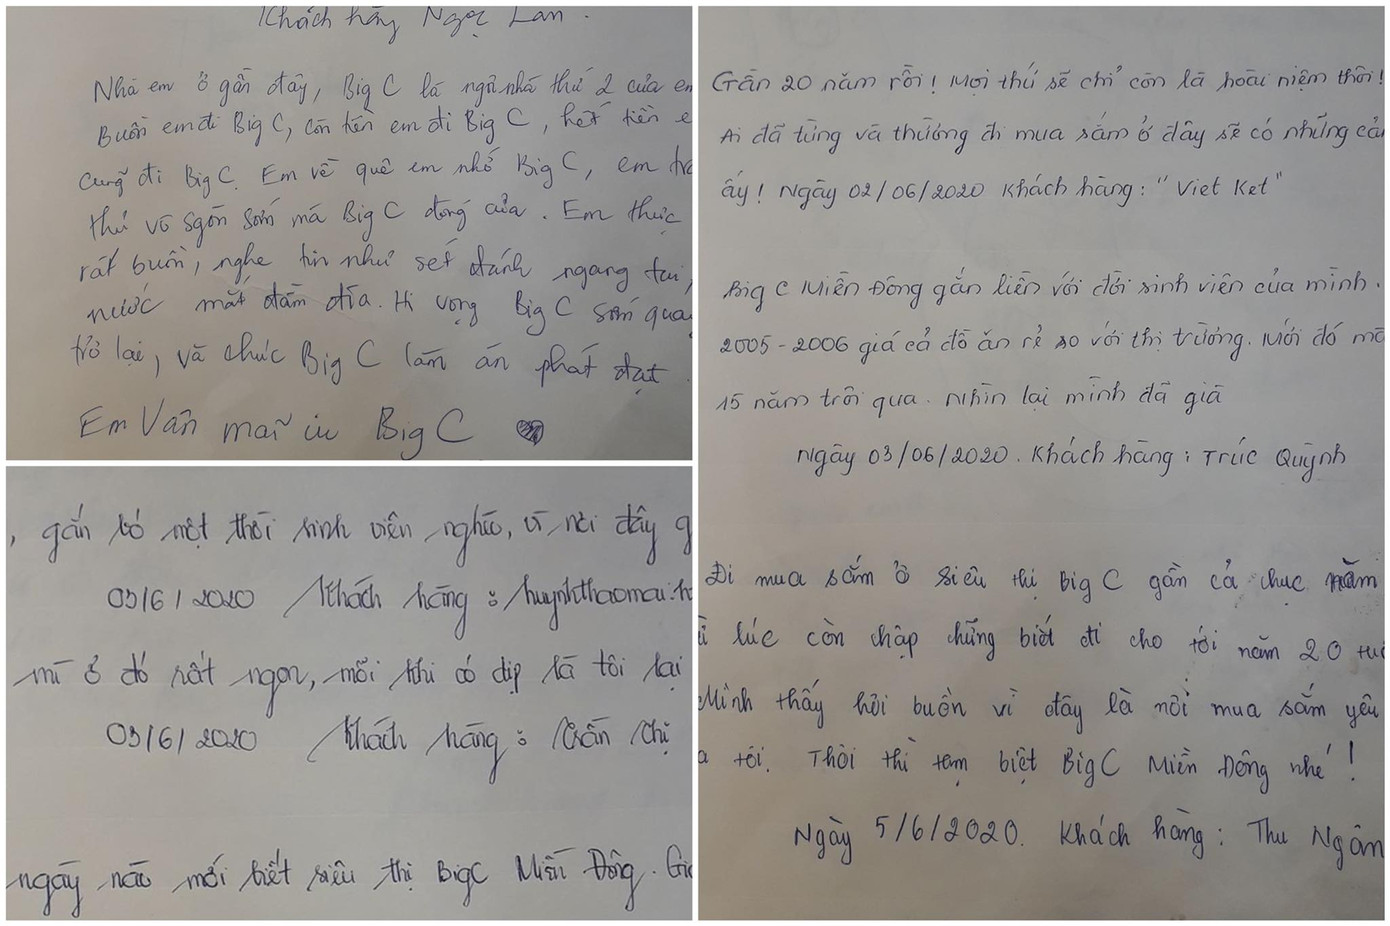 Khách hàng Ngọc Lan.
Nhà em ở gần đây, Big C là ngôi nhà thứ 2 của em
Buồn em đi Big C, còn tiền em đi Big C, hết tiền e
cũng đi Big C. Em về quê em nhớ Big C, em
thủ vô sgòn sớm mà Big C đóng cửa. Em thực
rất buồn, nghe tin như sét đánh ngang tai,
nước mắt đầm đìa. Hi vọng Big C sớm quay
trở lại, và chúc Big C làm ăn phát đạt.
Em Vẫn mãi iu Big C
, gắn bó một thời sinh viên nghèo, vì nơi đây g
03/6/2020 Khách hàng: huynhthaomai.h
mì ở đó rất ngon, mỗi khi có dịp là tôi lại
03/6/2020 Khách hàng: Trần Chị
ngày nào mới biết siêu thị BigC Miền Đông. Gi
Gần 20 năm rồi! Mọi thứ sẽ chỉ còn là hoài niệm thôi!
Ai đã từng và thường đi mua sắm ở đây sẽ có những cả
ấy! Ngày 02/06/2020 Khách hàng: "Viet Ket"
Big C Miền Đông gắn liền với đời sinh viên của mình.
2005-2006 giá cả đồ ăn rẻ so với thị trường. Mới đó mà
15 năm trôi qua. Nhìn lại mình đã già
Ngày 03/06/2020. Khách hàng: Trúc Quỳnh
Đi mua sắm ở siêu thị Big C gần cả chục năm
lúc còn chập chững biết đi cho tới năm 20 tuổ
Mình thấy hơi buồn vì đây là nơi mua sắm yêu
a tôi. Thôi thì tạm biệt BigC Miền Đông nhé!
Ngày 5/6/2020. Khách hàng: Thu Ngân